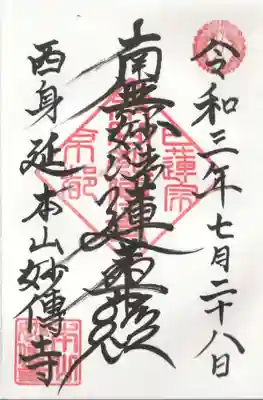 令和三年七月二十八日
南無妙法蓮華経
西身延本山妙傳寺
日蓮宗
京都